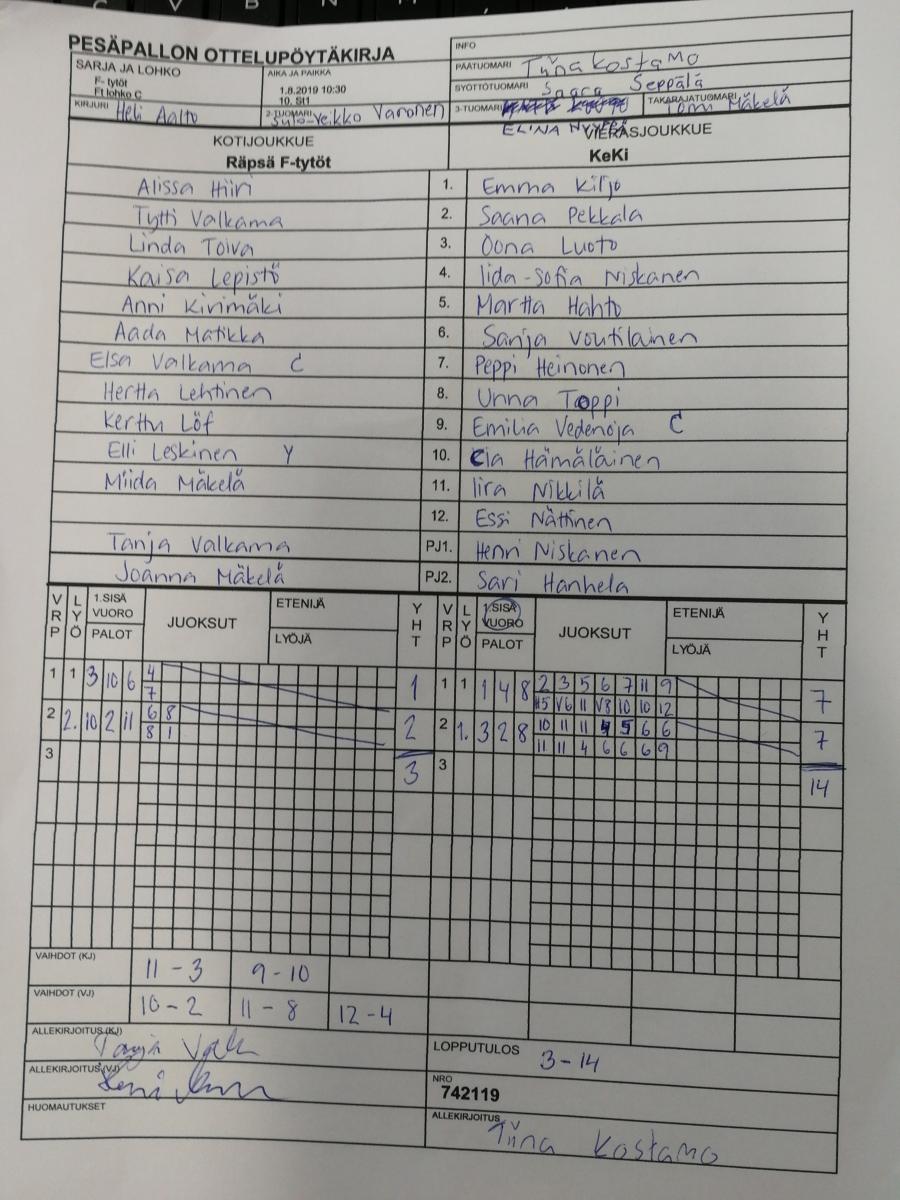 PESÄPALLON OTTELUPÖYTÄKIRJA
INFO
SARJA JA LOHKO
F- tytöt
Ft lohko C
AIKA JA PAIKKA
1.8.2019 10:30
10. St1
PÄÄTUOMARI Tiina Kostamo
SYÖTTÖTUOMARI Saara Seppälä
KIRJURI Heli Aalto
2-TUOMARI Sulo-Veikko Varonen
3-TUOMARI
TAKARAJATUOMARI Tomi Mäkelä
ELINA
KOTIJOUKKUE
Räpsä F-tytöt
VIERASJOUKKUE
KeKi
Alissa Hiiri 1. Emma Kiljo
Tytti Valkama 2. Saana Pekkala
Linda Toiva 3. Oona Luoto
Kaisa Lepistö 4. Iida-Sofia Niskanen
Anni Kivimäki 5. Martta Hahto
Aada Matikka 6. Sanja Voutilainen
Elsa Valkama C 7. Peppi Heinonen
Hertta Lehtinen 8. Unna Toppi
Kerttu Löf 9. Emilia Vedenoja C
Elli Leskinen Y 10. Hämäläinen
Miida Mäkelä 11. Iira Nikkilä
12. Essi Nättinen
Tanja Valkama PJ1. Henri Niskanen
Joanna Mäkelä PJ2. Sari Hanhela
VRP LYÖ 1.SISÄ VUORO PALOT JUOKSUT ETENIJÄ LYÖJÄ YHT VRP LYÖ 1.SISÄ VUORO PALOT JUOKSUT ETENIJÄ LYÖJÄ YHT
1 1 3 10 6 4 1 1 1 1 4 8 2 3 5 6 7 11 9 7
7 H5 V6 11 V8 10 10 12
2 2. 10 2 11 6 8 2 2 1. 3 2 8 10 11 11 5 6 6 7
8 1 11 11 4 6 6 6 9
3 3 3 14
VAIHDOT (KJ) 11 - 3 9 - 10
VAIHDOT (VJ) 10 - 2 11 - 8 12 - 4
ALLEKIRJOITUS (KJ)
LOPPUTULOS 3 - 14
ALLEKIRJOITUS (VJ)
NRO
742119
HUOMAUTUKSET
ALLEKIRJOITUS Tiina Kostamo